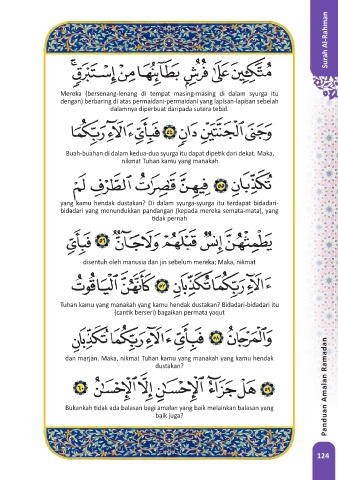 Surah Al-Rahman
مُتَّكِـِٔينَ عَلَىٰ فُرُشٍۭ بَطَآئِنُهَا مِنْ إِسْتَبْرَقٍۢ ۚ
Mereka (bersenang-lenang di tempat masing-masing di dalam syurga itu
dengan) berbaring di atas permaidani-permaidani yang lapisan-lapisan sebelah
dalamnya diperbuat daripada sutera tebal.
وَجَنَى ٱلْجَنَّتَيْنِ دَانٍۢ ۝٥٤ فَبِأَىِّ ءَالَآءِ رَبِّكُمَا
Buah-buahan di dalam kedua-dua syurga itu dapat dipetik dari dekat. Maka,
nikmat Tuhan kamu yang manakah
تُكَذِّبَانِ ۝٥٥ فِيهِنَّ قَٰصِرَٰتُ ٱلطَّرْفِ لَمْ
yang kamu hendak dustakan? Di dalam syurga-syurga itu terdapat bidadari-
bidadari yang menundukkan pandangan (kepada mereka semata-mata), yang
tidak pernah
يَطْمِثْهُنَّ إِنسٌۭ قَبْلَهُمْ وَلَا جَآنٌّۭ ۝٥٦ فَبِأَىِّ
disentuh oleh manusia dan jin sebelum mereka; Maka, nikmat
ءَالَآءِ رَبِّكُمَا تُكَذِّبَانِ ۝٥٧ كَأَنَّهُنَّ ٱلْيَاقُوتُ
Tuhan kamu yang manakah yang kamu hendak dustakan? Bidadari-bidadari itu
(cantik berseri) bagaikan permata yaqut
وَٱلْمَرْجَانُ ۝٥٨ فَبِأَىِّ ءَالَآءِ رَبِّكُمَا تُكَذِّبَانِ
dan marjan. Maka, nikmat Tuhan kamu yang manakah yang kamu hendak
dustakan?
۝٥٩ هَلْ جَزَآءُ ٱلْإِحْسَٰنِ إِلَّا ٱلْإِحْسَٰنُ ۝٦٠
Bukankah tidak ada balasan bagi amalan yang baik melainkan balasan yang
baik juga?
Panduan Amalan Ramadan
124